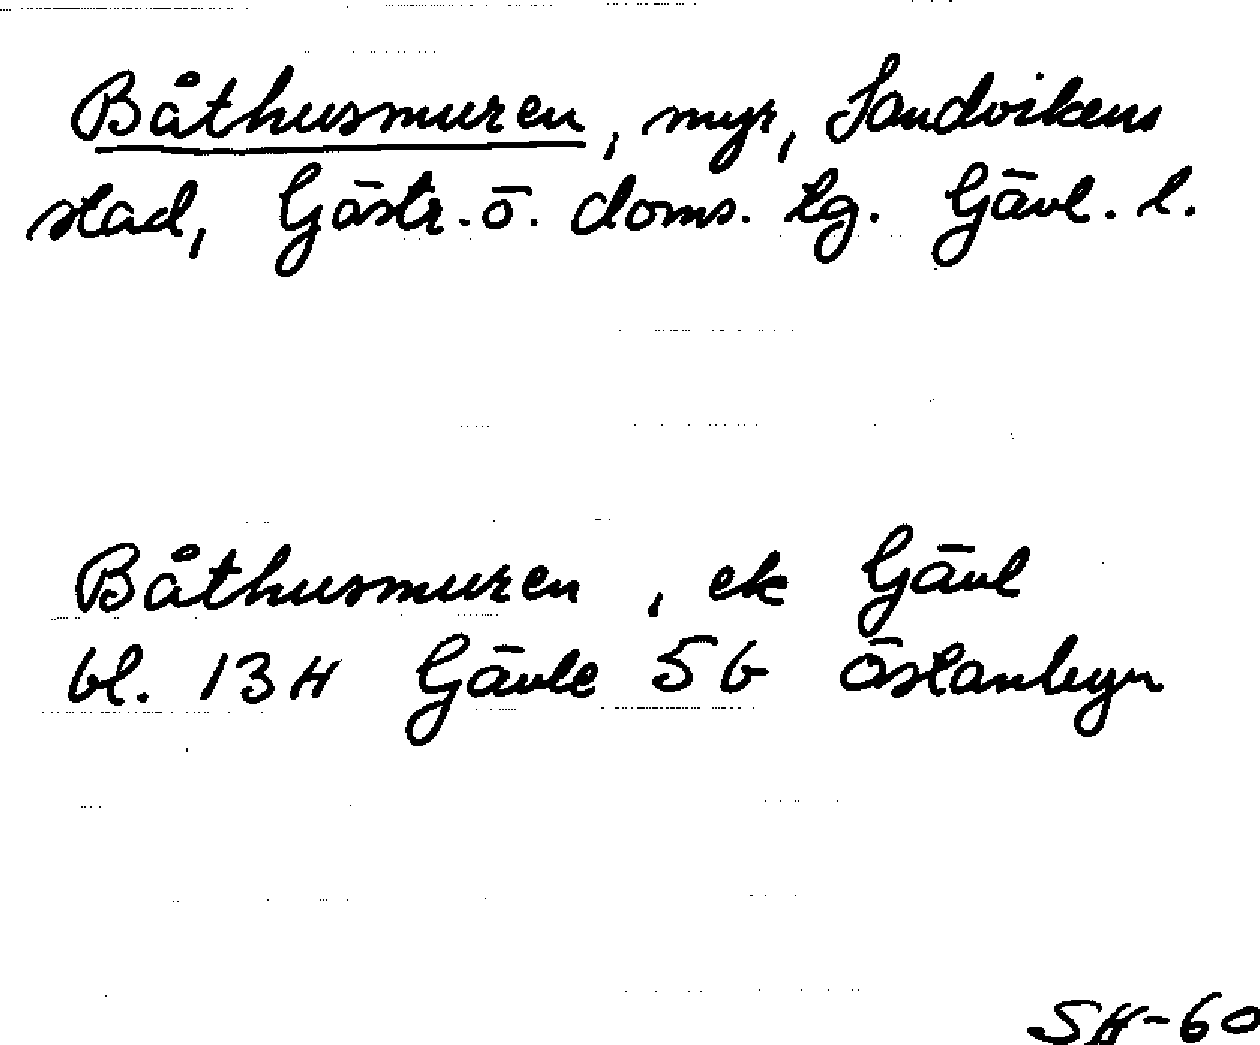 Båthusmuren, myr, Sandvikens
stad, Gästr. ö. doms. tg. Gävl. l.
Båthusmuren, ek Gävl
bl. 13H Gävle 5b Östanbyn
SH-60